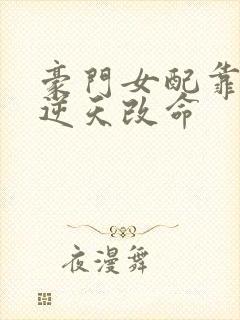 豪門女配靠
逆天改命
夜漫舞